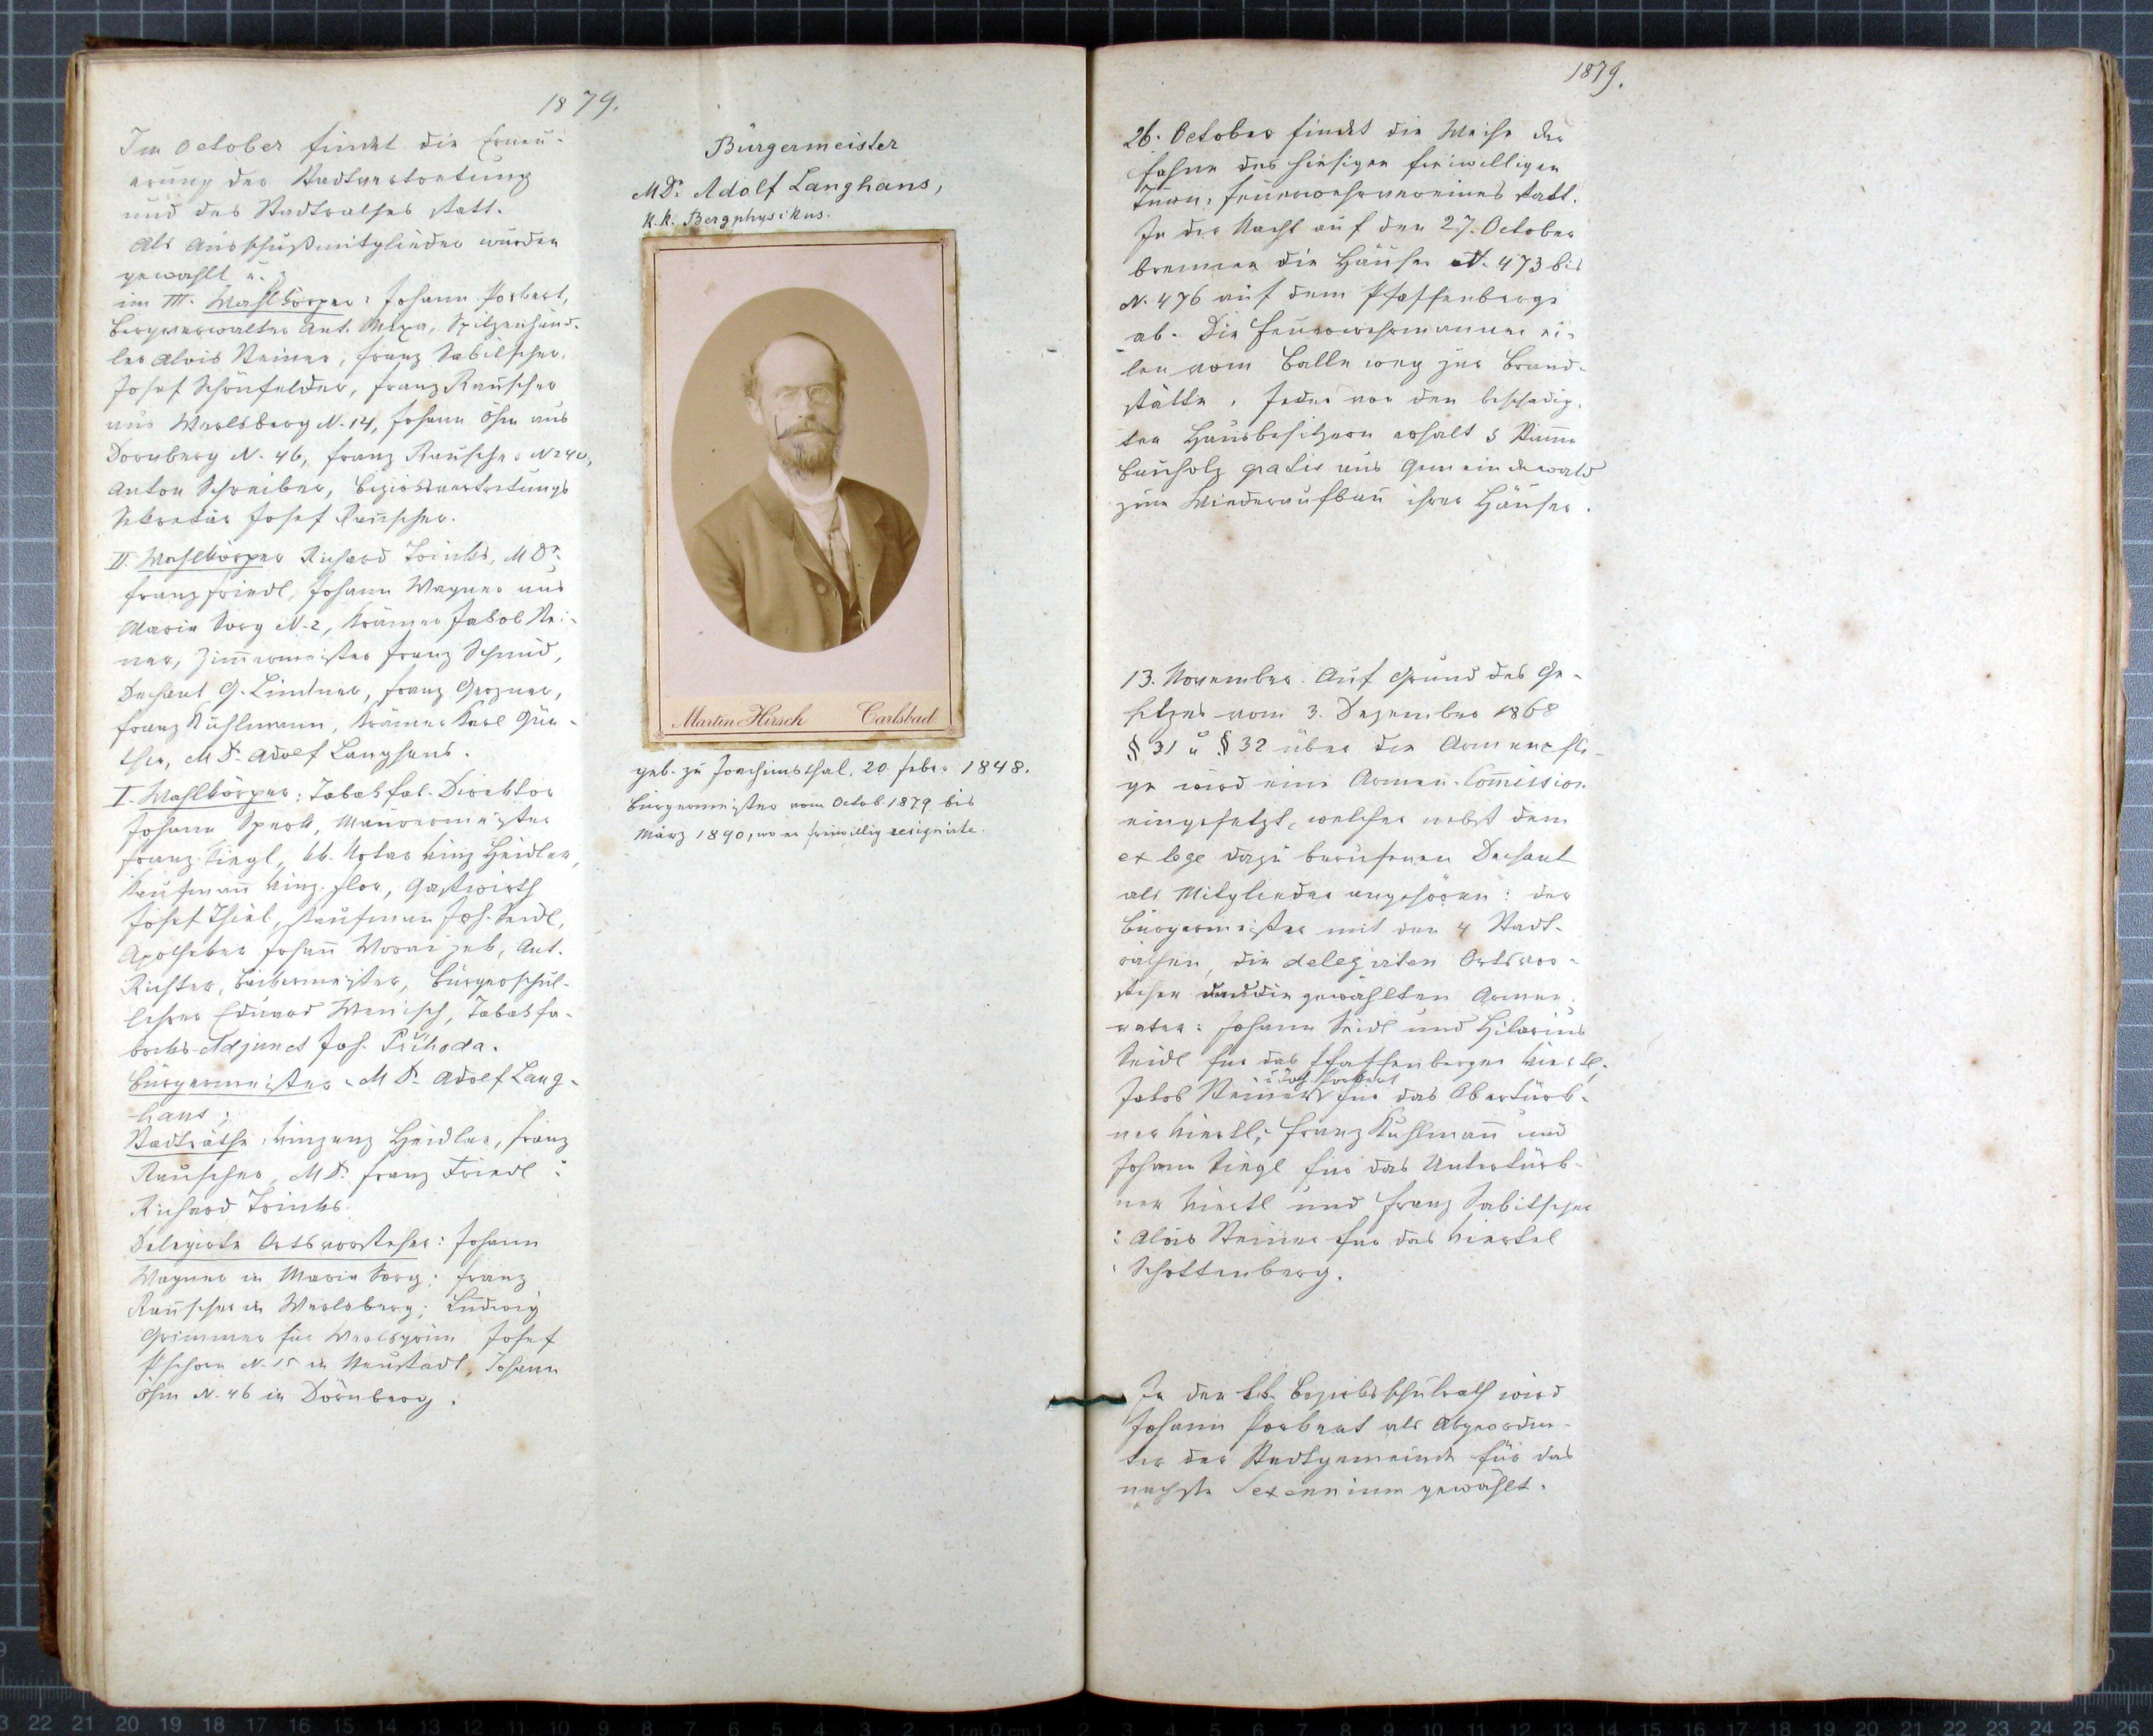 1879.
Im October findet die Erneu-
erung der Stadtvertretung
und des Stadtrathes statt.
Als Ausschußmitglieder wurden
gewählt u. z.
im III. Wahlkörper: Johann Porkert,
Bergverwalter Ant. Mixa, Spitzenhänd-
ler Alois Steiner, Franz Sabitscher,
Josef Schönfelder, Franz Rauscher
aus Werlsberg N. 14, Johann Öhm aus
Dornberg N. 46, Franz Rauscher
Anton Schreiber, Bezirksvertretungs
Sekretär Josef Rauscher.
II. Wahlkörper Richard Trinks, MDr.
Franz Friedl, Johann Wagner aus
Maria Sorg N. 2, Krämer Jakob Stei-
ner, Zimmermeister Franz Schmid,
Dechant G. Lindner, Franz Grozner,
Franz Kuhlmann, Krämer Karl Gün-
ther, MDr. Adolf Langhans.
I. Wahlkörper: Tabakfab. Direktor
Johann Maurermeister
Franz Siegl, kk. Notar Vinz Heidler,
Kaufmann Vinz. Flor, Gastwirth
Josef Thiel, Kaufmann Joh. Seidl,
Apotheker Johann Woraizek, Ant.
Richter, Bürgerschul-
lehrer Eduard Wenisch, Tabakfa-
briks Adjunct Jos. Přihoda.
Bürgermeister MDr. Adolf Lang-
hans;
Stadträthe: Vinzenz Heidler, Franz
Rauscher, MDr. Franz Friedl u
Richard Trinks.
Delegirte Ortsvorsteher: Johann
Wagner in Maria Sorg; Franz
Rauscher in Werlsberg; Ludwig
Grimmer für Werlsgrün Josef
Pschorn N. 15 in Neustadt, Johann
Öhm N. 46 in Dörnberg.
Bürgermeister
MDr. Adolf Langhans,
k.k. Bergphysikus.
Martin Hirsch Carlsbad
geb. zu Joachimsthal, 20. Feber 1848.
Bürgermeister vom Octob. 1879 bis
März 1890, wo er freiwillig resignirte.
1879.
26. October findet die Weihe der
Fahne des hiesigen freiwilligen
Turn- Feuerwehrvereines statt.
In der Nacht auf den 27. October
brennen die Häuser N. 473 bis
N. 476 auf dem Pfaffenberge
ab. Die Feuerwehrmänner ei-
len vom Balle weg zur Brand-
stätte. Jeder von den beschädig-
ten Hausbesitzern erhält 5 Stämme
Bauholz gratis aus Gemeindewald
zum Wiederaufbau ihrer Häuser.
13. November. Auf Grund des Ge-
setzes vom 3. Dezember 1868
§ 31 u § 32 über die Armenpfle-
ge wird eine Armen-Commission
eingesetzt, welcher nebst dem
ex lege dazu berufenen Dechant
als Mitglieder angehören: der
Bürgermeister mit den 4 Stadt-
räthen, die delegirten Ortsvor-
steher und die gewählten Armen-
väter: Johann Seidl und Hilarius
Seidl für das Pfaffenberger Viertl;
u Joh. Porkert
Jakob Steiner für das Obertürk-
ner Viertl; Franz Kuhlmann und
Johann Siegl für das Untertürk-
ner Viertl und Franz Sabitscher
u Alois Steiner für das Viertel
Schottenberg.
In den k.k. Bezirksschulrath wird
Johann Porkert als Abgeordne-
ter der Stadtgemeinde für das
nächste Sexennium gewählt.